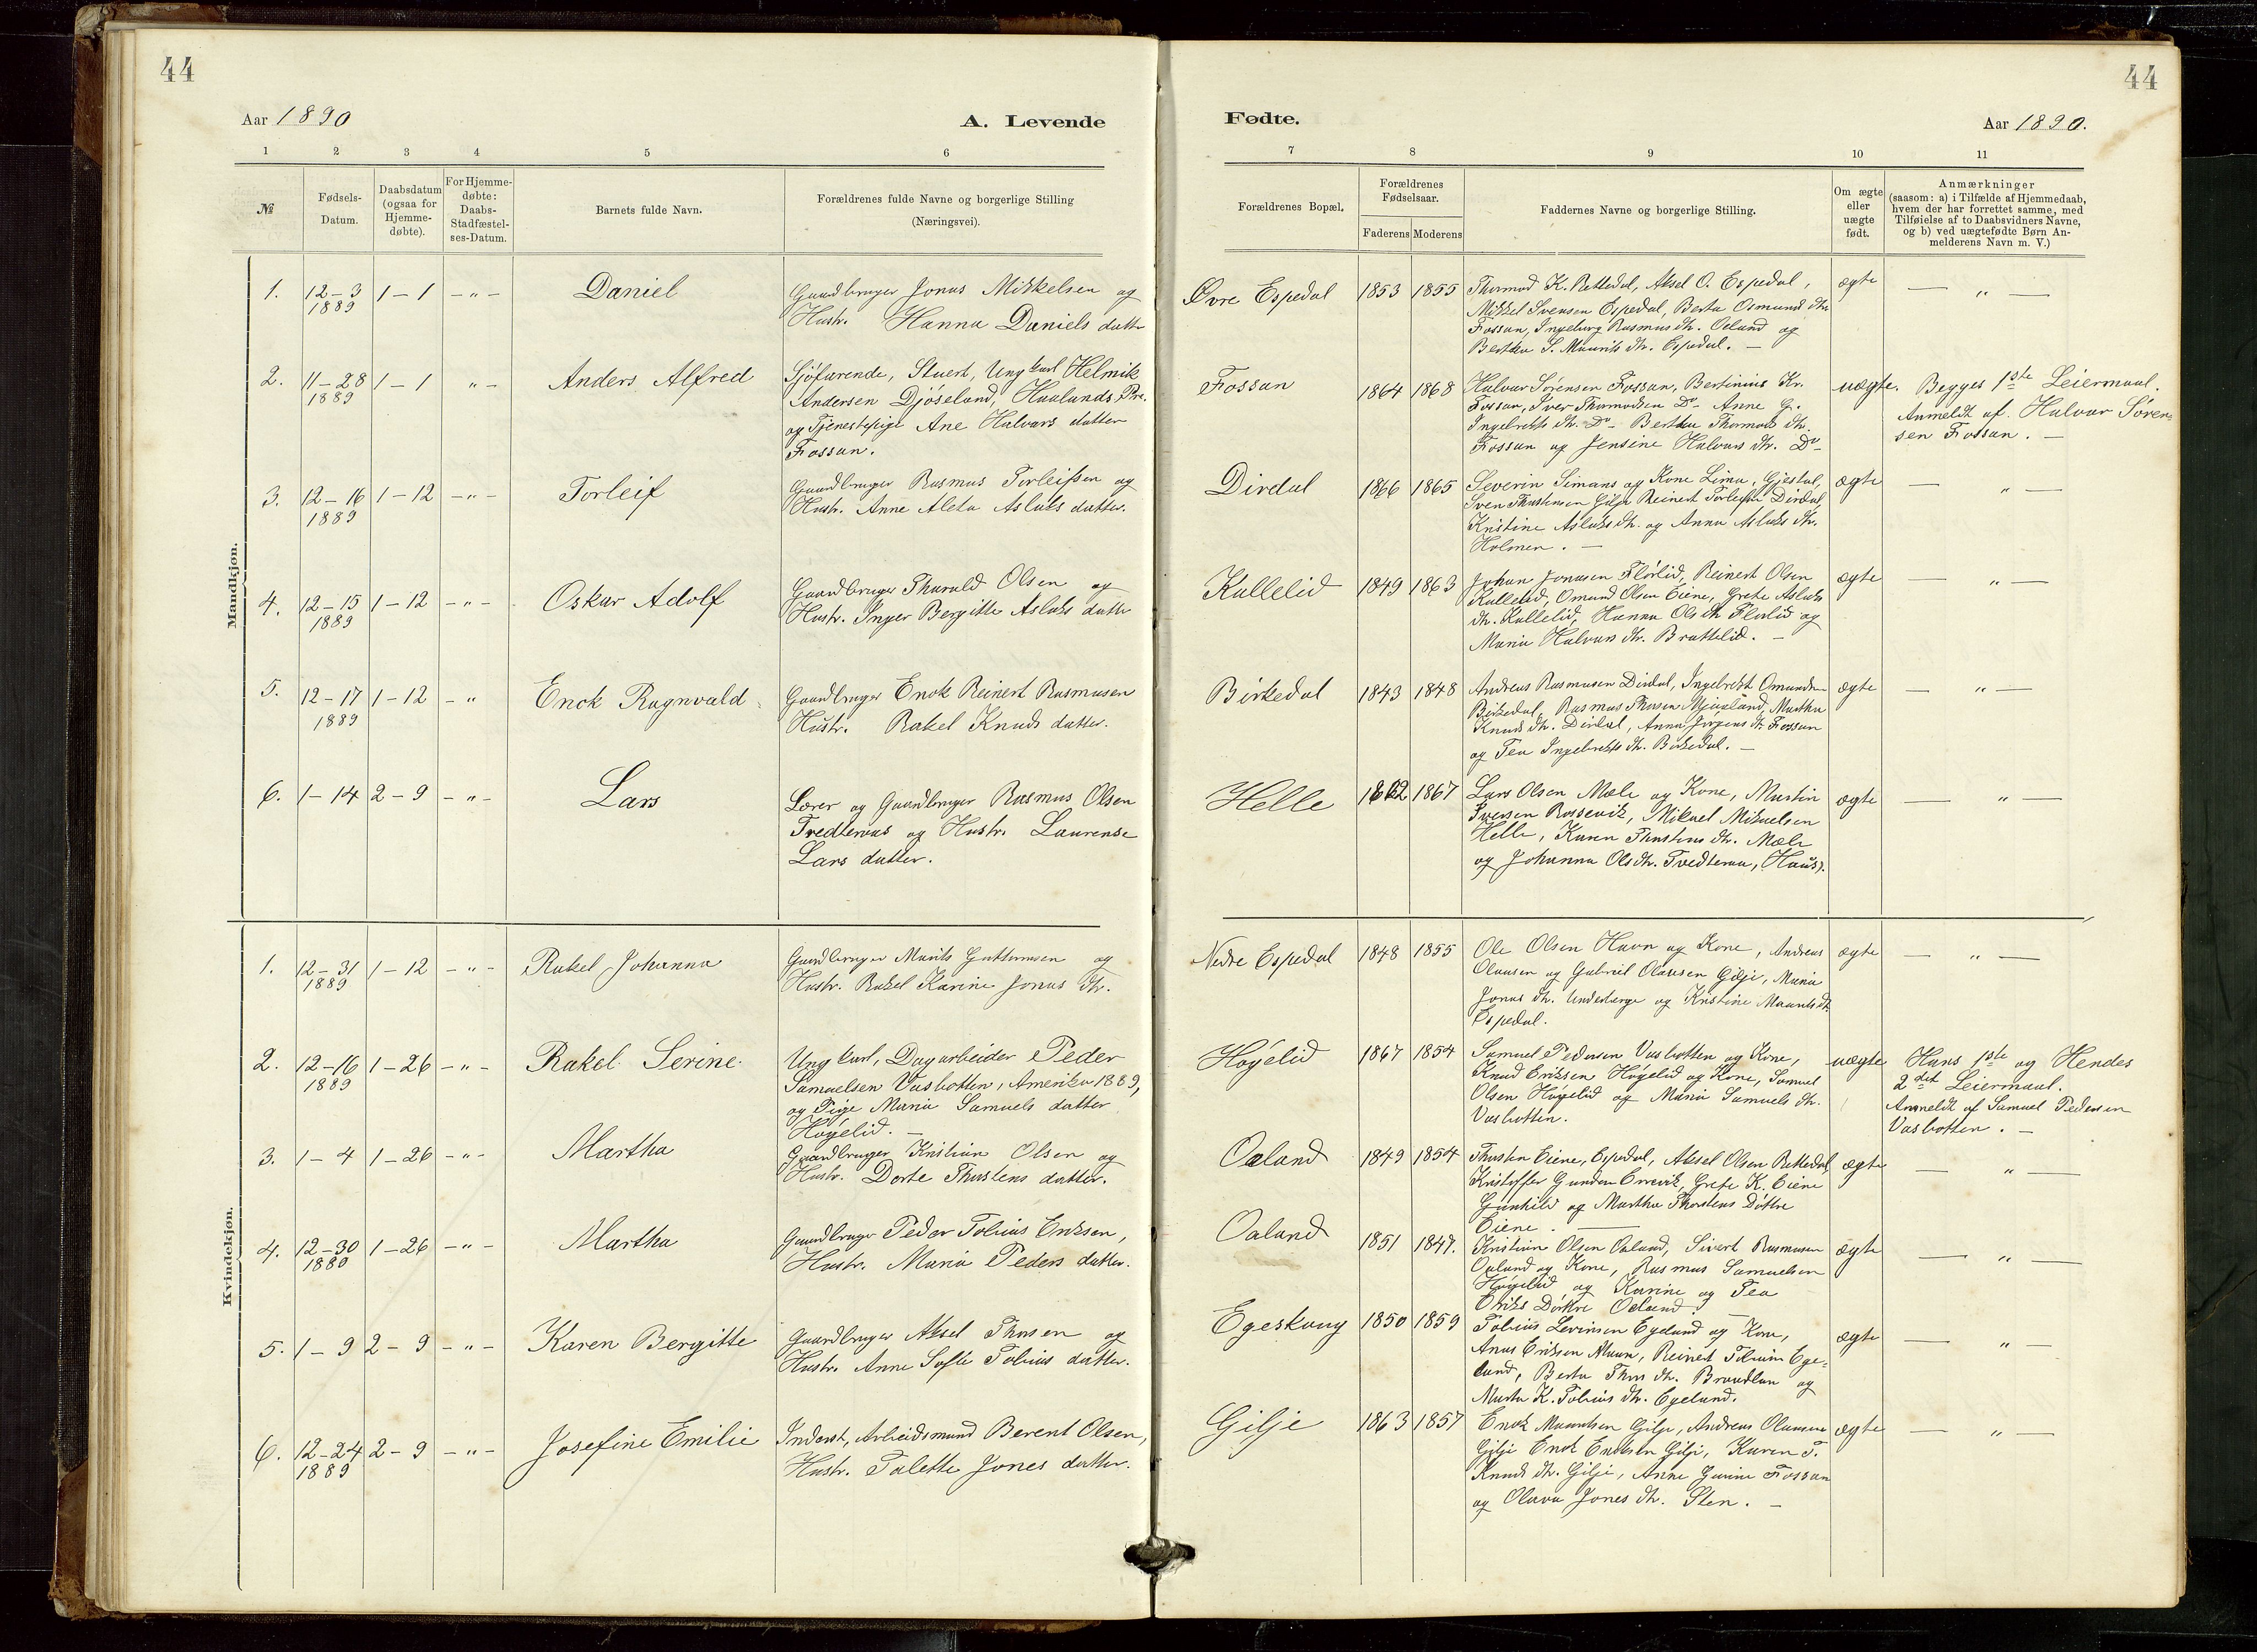 44
Aar 1890
A. Levende
1 2 3 4 5 6
№
Fødsels-
Datum.
Daabsdatum
(ogsaa for
Hjemme-
døbte).
For Hjemme-
døbte:
Daabs-
Stadfæstel-
ses-Datum.
Barnets fulde Navn.
Forældrenes fulde Navne og borgerlige Stilling
(Næringsvei).
Mandkjøn.
1. 12-3 1-1 - " - Daniel
1889
Gaardbruger Jonas Mikkelsen og
Hustr. Hanna Daniels datter
2. 11-28 1-1 " - Anders Alfred
1889
Sjøfarende, Stuert, Ungkarl Helmik
Andersen Djøseland, Haalands Pre.
og Tjenestepige Ane Halvars datter
Fossan.
3. 12-16 1-12 - " - Torleif
1889
Gaardbruger Rasmus Torleifsen og
Hustr. Anne Aleta Aslaks datter.
4. 12-15 1-12 - " - Oskar Adolf
1889
Gaardbruger Tharald Olsen og
Hustr. Inger Bergitte Aslaks datter
5. 12-17 1-12 - " Enok Ragnvald
1889
Gaardbruger Enok Reinert Rasmusen
Hustr. Rakel Knuds datter.
6. 1-14 2-9 - " - Lars
Lærer og Gaardbruger Rasmus Olsen
Tvedteraas og Hustr. Laurense
Lars datter.
Kvindekjøn.
1. 12-31 1-12 - " - Rakel Johanna
1889
Gaardbruger Mauritz Guttormsen og
Hustr. Rakel Karine Jonas dtr.
2. 12-16 1-26 - " - Rakel Serine
1889
Ungkarl, Dagarbeider Peder
Samuelsen Vasbotten, Amerika 1889,
og Pige Maria Samuels datter
Høyelid. -
3. 1-4 1-26 - " - Martha
Gaardbruger Kristian Olsen og
Hustr. Dorte Thustens datter.
4. 12-30 1-26 - " - Martha
1889
Gaardbruger Peder Tobias Eriksen,
Hustr. Maria Peders datter.
5. 1-9 2-9 - " - Karen Bergitte
Gaardbruger Aksel Thosen og
Hustr. Anne Sofie Tobias datter.
6. 12-24 2-9 - " - Josefine Emilie
1889
Inderst, Arbeidsmand Berent Olsen,
Hustr. Talette Jones datter.
44
Fødte.
Aar 1890.
7 8 9 10 11
Forældrenes Bopæl.
Forældrenes
Fødselsaar.
Faderens Moderens
Faddernes Navne og borgerlige Stilling.
Om ægte
eller
uægte
født.
Anmærkninger
(saasom: a) i Tilfælde af Hjemmedaab,
hvem der har forrettet samme, med
Tilføielse af to Daabsvidners Navne,
og b) ved uægtefødte Børn An-
melderens Navn m. V.)
Øvre Espedal 1853 1855 Thormod K. Rettedal, Aksel O. Espedal, ægte - " -
Mikkel Svensen Espedal, Berta Osmund dtr.
Fossan, Ingeborg Rasmus dtr. Oaland og
Berthe S. Maurits dtr. Espedal. -
Fossan 1864 1868 Halvar Sørensen Fossan, Bertinius Kr. uægte. Begges 1ste Leiermaal.
Fossan, Iver Thormodsen Do - Anne G.
Ingebrets dtr. Do - Berthe Thormods dtr.
Fossan og Jensine Halvars dtr. Do -
Anmeldt af Halvar Søren-
sen Fossan. -
Dirdal 1866 1865 Severin Simans og Kone Lima, Gjestal, ægte - " -
Sven Thustensen Gilje Reinert Torleifsen Dirdal,
Kristine Aslaks dtr. og Anna Aslaks dtr.
Holmen. -
Kallelid 1849 1863 Johan Jonasen Flørlid, Reinert Olsen ægte - " -
Kallelid, Omund Olsen Eiene, Grete Aslaks
dtr. Kallelid, Hanna Ols dtr Flørlid og
Maria Halvars dtr. Brattelid. -
Birkedal 1843 1848 Andreas Rasmusen Dirdal, Ingebret Omundsen ægte - " -
Birkedal, Rasmus Thosen Mjaaland, Martha
Knuds dtr. Dirdal, Anna Jørgens dtr Fossan
og Tea Ingebrets dtr. Birkedal. -
Helle 1862 1867 Lars Olsen Mæle og Kone, Martin ægte - " -
Iversen Rossevik, Mikael Mikaelsen
Helle, Karen Thustens dtr. Mæle
og Johanna Ols dtr. Tvedteraa, Haus).
Nedre Espedal 1848 1855 Ole Olsen Havn og Kone, Andreas ægte - " -
Olausen og Gabriel Olausen Gilje, Maria
Jonas dtr. Underberge og Kristine Maurits dtr.
Espedal.
Høyelid 1867 1854 Samuel Pedersen Vasbotten og Kone, uægte Hans 1ste og Hendes
Knud Eriksen Høyelid og Kone, Samuel
Olsen Høyelid og Maria Samuels dtr.
Vasbotten.
2det Leiermaal.
Anmeldt af Samuel Pedersen
Vasbotten. -
Oaland 1849 1854 Thusten Eiene, Espedal, Aksel Olsen Rettedal, ægte - " -
Kristoffer Gundersen Erevik, Grete K. Eiene
Gunhild og Martha Thorstens Døttre
Eiene. -
Oaland 1851 1847. Kristian Olsen Oaland, Sivert Rasmusen ægte - " -
Oaland og Kone, Rasmus Samuelsen
Høyelid og Karine og Tea
Eriks Døttre Oaland. -
Egeskaug 1850 1859 Tobias Levinsen Egeland og Kone, ægte - " -
Anas Eriksen Maan, Reinert Tobiasen Ege-
land, Berta Thos dtr. Brandlan og
Marta K. Tobias dtr. Egeland.
Gilje 1863 1857 Enok Mauritsen Gilje, Andreas Olausen ægte - " -
Gilje Enok Enoksen Gilje, Karen T.
Knuds dtr. Gilje, Anne Gurine Fossan
og Olava Jones dtr. Sten. -